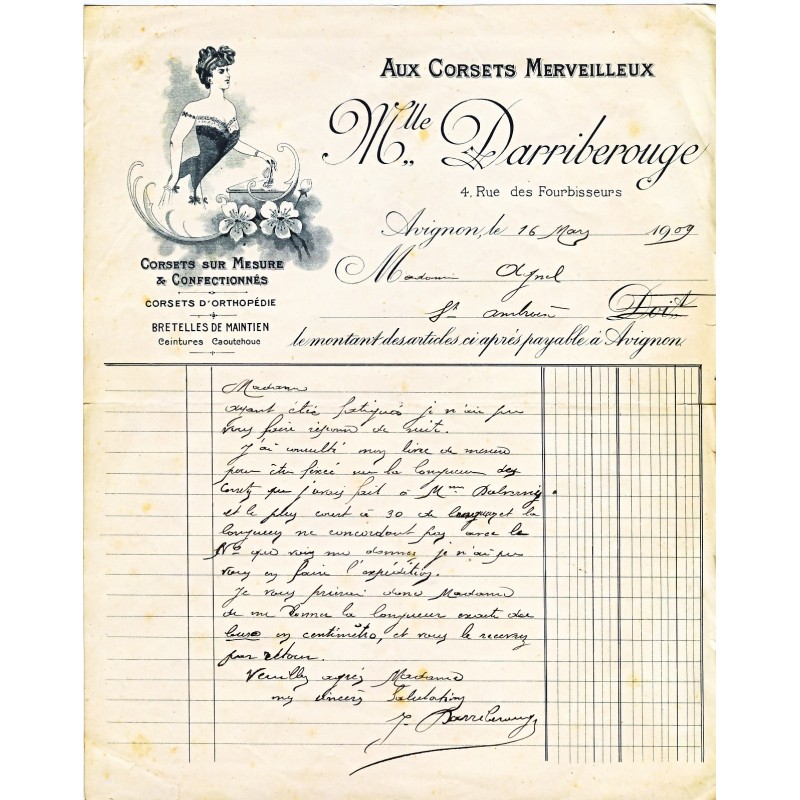 AUX CORSETS MERVEILLEUX
Mlle Darriberouge
4, Rue des Fourbisseurs
Avignon, le 16 Mars 1909
CORSETS SUR MESURE
& CONFECTIONNÉS
CORSETS D'ORTHOPÉDIE
BRETELLES DE MAINTIEN
Ceintures Caoutchouc
Madame
St Ambroix Doit
le montant des articles ci après payable à Avignon
Madame
ayant étée fatiguée je n'ai pu
vous faire réponse de suite.
J'ai consulté mon livre de mesure
pour être fixée sur la longueur des
Corsets que j'avais fait à Mme
et le plus court à 30 de longueur et la
longueur ne concordant pas avec le
No que vous me donnez je n'ai pu
vous en faire l'expédition.
Je vous prierai donc Madame
de me donner la longueur exacte du
busc en centimètre, et vous le recevrez
par retour.
Veuillez agréer Madame
mes sincères Salutations
J. Darriberouge